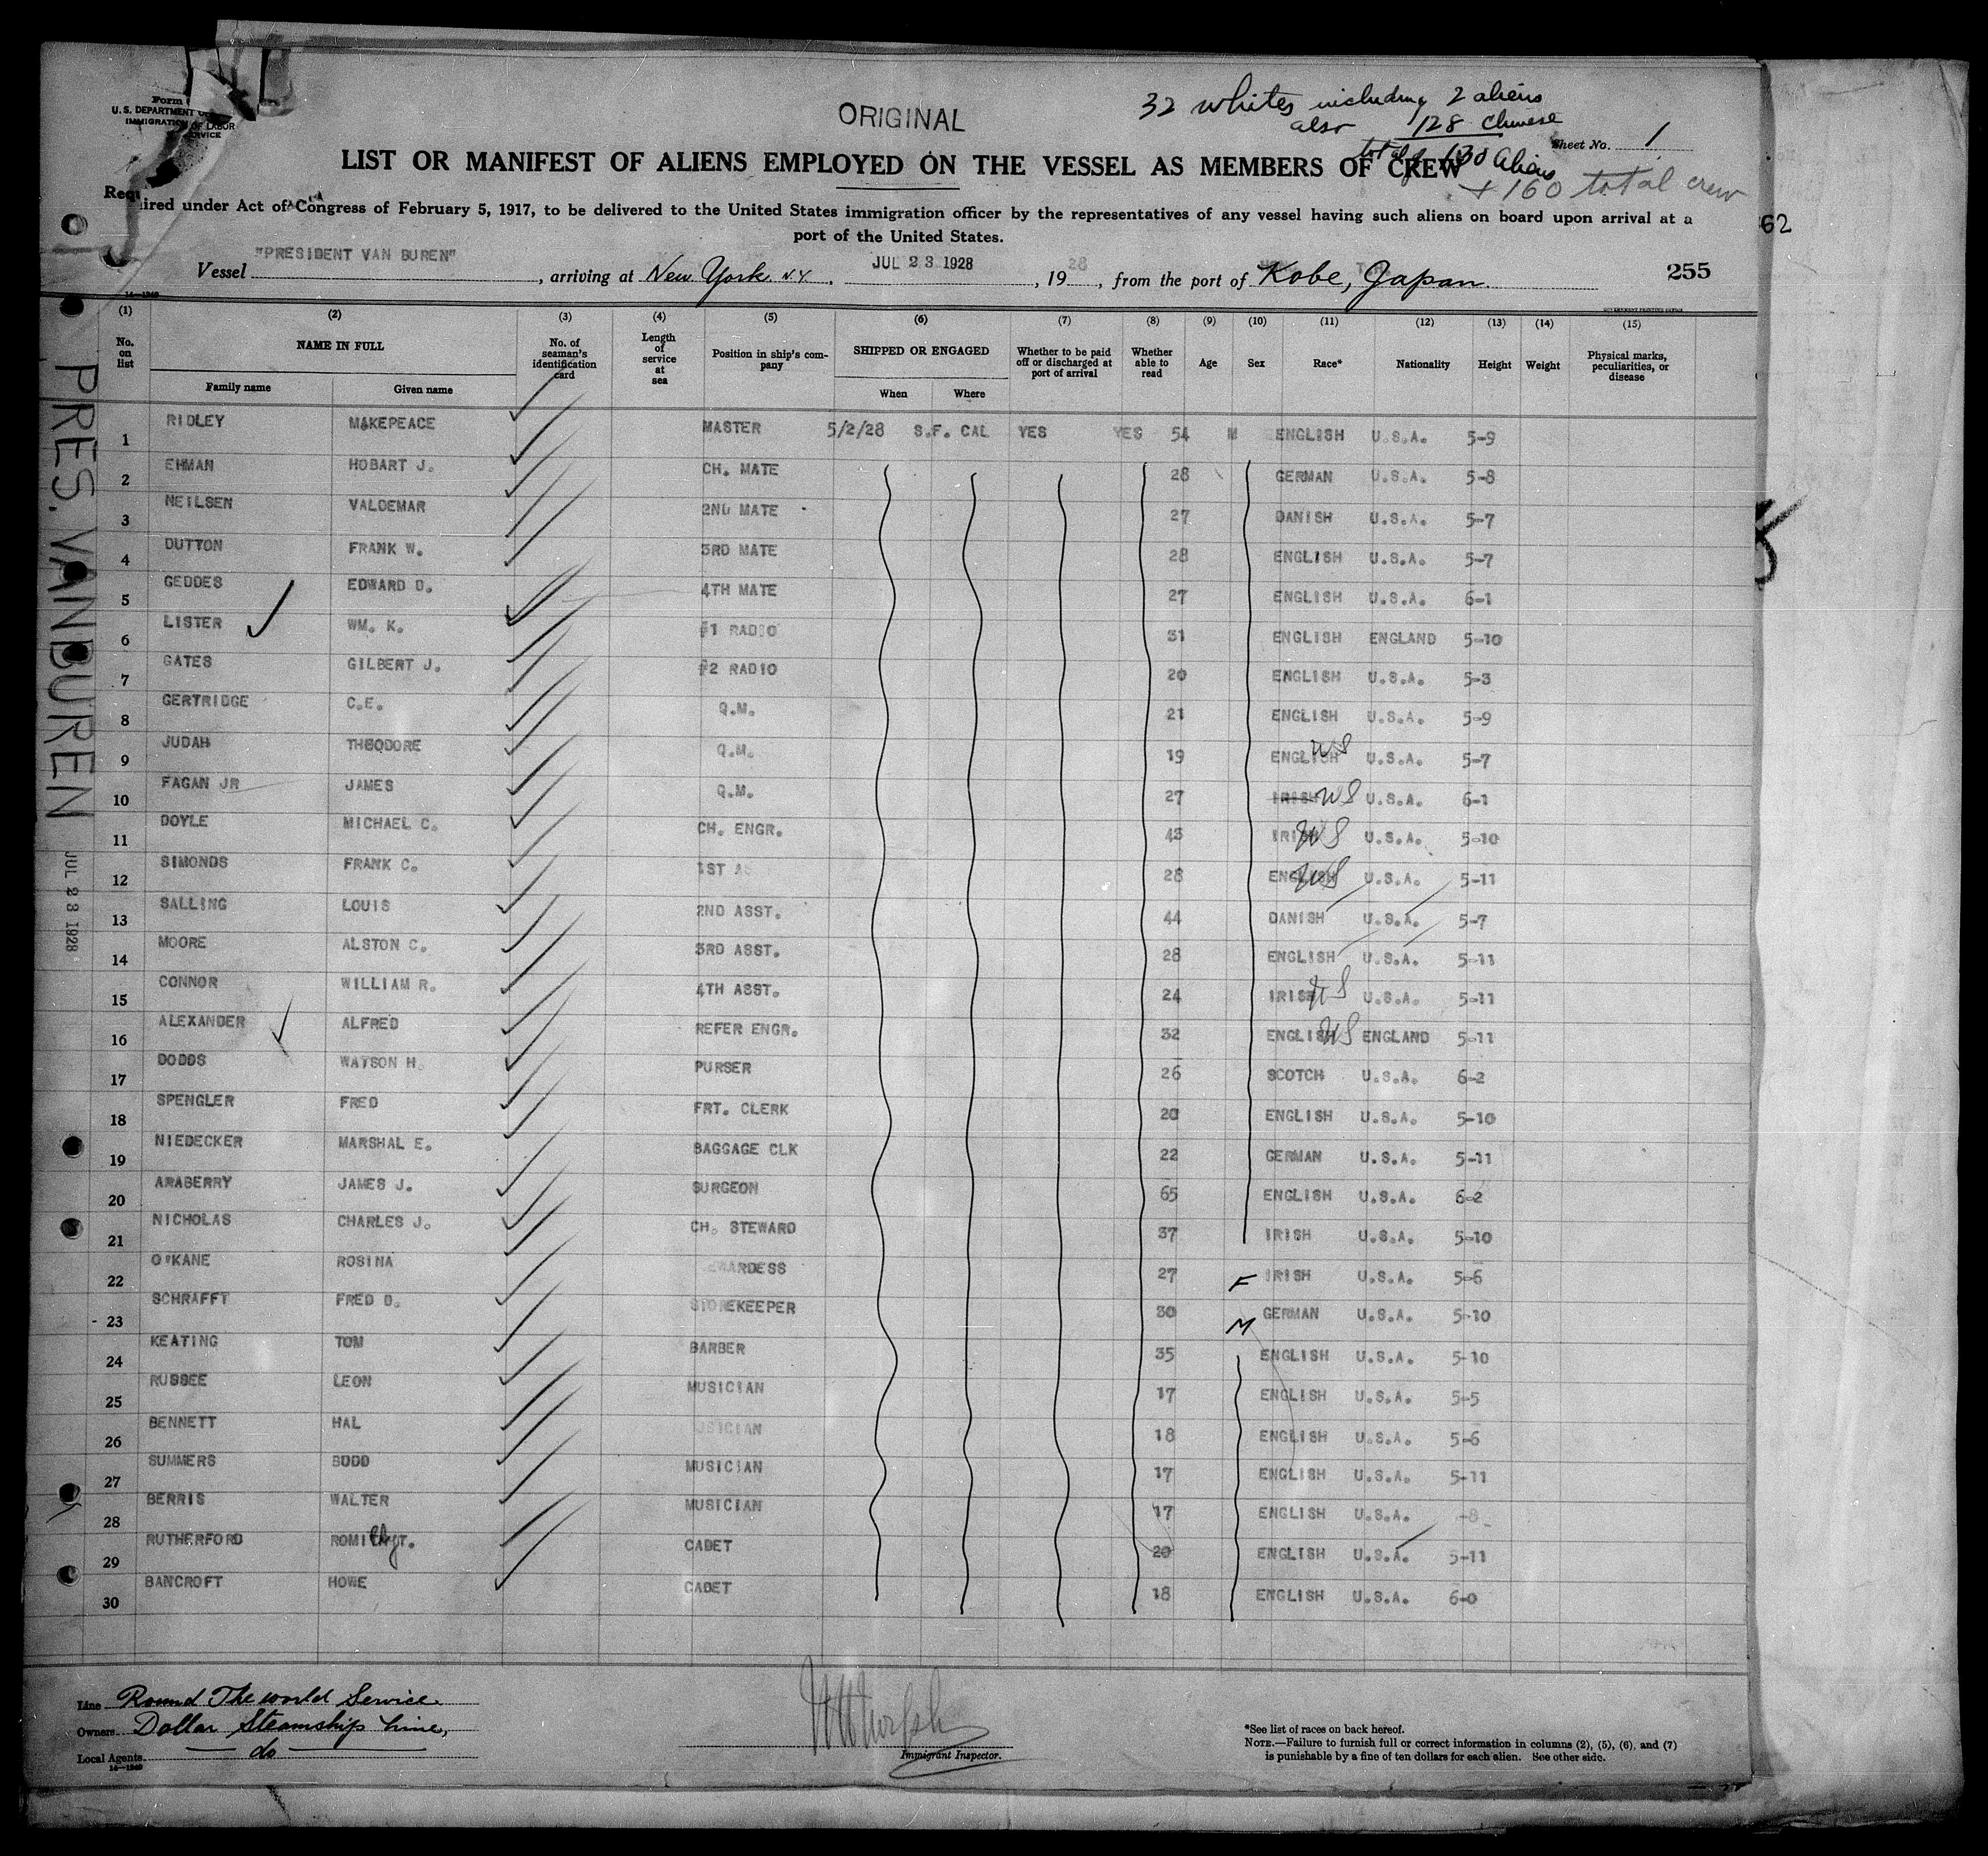 ORIGINAL
32 whites including 2 aliens
also 128 Chinese
total of 130 aliens
+ 160 total crew
Form
U.S. DEPARTMENT OF LABOR
IMMIGRATION SERVICE
Sheet No. 1
LIST OR MANIFEST OF ALIENS EMPLOYED ON THE VESSEL AS MEMBERS OF CREW
Required under Act of Congress of February 5, 1917, to be delivered to the United States immigration officer by the representatives of any vessel having such aliens on board upon arrival at a
port of the United States.
62
Vessel "PRESIDENT VAN BUREN", arriving at New York N.Y., JUL 23 1928, 1928, from the port of Kobe, Japan. 255
14—1240
GOVERNMENT PRINTING OFFICE
(1) (2) (3) (4) (5) (6) (7) (8) (9) (10) (11) (12) (13) (14) (15)
No. on list NAME IN FULL No. of seaman's identification card Length of service at sea Position in ship's company SHIPPED OR ENGAGED Whether to be paid off or discharged at port of arrival Whether able to read Age Sex Race* Nationality Height Weight Physical marks, peculiarities, or disease
Family name Given name When Where
1 RIDLEY MAKEPEACE MASTER 5/2/28 S.F. CAL YES YES 54 M ENGLISH U.S.A. 5-9
2 EHMAN HOBART J. CH. MATE 28 GERMAN U.S.A. 5-8
3 NEILSEN VALDEMAR 2ND MATE 27 DANISH U.S.A. 5-7
4 DUTTON FRANK W. 3RD MATE 28 ENGLISH U.S.A. 5-7
5 GEDDES EDWARD D. 4TH MATE 27 ENGLISH U.S.A. 6-1
6 LISTER WM. K. #1 RADIO 31 ENGLISH ENGLAND 5-10
7 GATES GILBERT J. #2 RADIO 20 ENGLISH U.S.A. 5-3
8 GERTRIDGE C.E. Q.M. 21 ENGLISH U.S.A. 5-9
9 JUDAH THEODORE Q.M. 19 ENGLISH US U.S.A. 5-7
10 FAGAN JR JAMES Q.M. 27 IRISH US U.S.A. 6-1
11 DOYLE MICHAEL C. CH. ENGR. 43 IRISH US U.S.A. 5-10
12 SIMONDS FRANK C. 1ST AS 28 ENGLISH US U.S.A. 5-11
13 SALLING LOUIS 2ND ASST. 44 DANISH U.S.A. 5-7
14 MOORE ALSTON C. 3RD ASST. 28 ENGLISH U.S.A. 5-11
15 CONNOR WILLIAM R. 4TH ASST. 24 IRISH US U.S.A. 5-11
16 ALEXANDER ALFRED REFER ENGR. 32 ENGLISH US ENGLAND 5-11
17 DODDS WATSON H. PURSER 26 SCOTCH U.S.A. 6-2
18 SPENGLER FRED FRT. CLERK 20 ENGLISH U.S.A. 5-10
19 NIEDECKER MARSHAL E. BAGGAGE CLK 22 GERMAN U.S.A. 5-11
20 ARABERRY JAMES J. SURGEON 65 ENGLISH U.S.A. 6-2
21 NICHOLAS CHARLES J. CH. STEWARD 37 IRISH U.S.A. 5-10
22 O'KANE ROSINA EWARDESS 27 F IRISH U.S.A. 5-6
23 SCHRAFFT FRED D. STOREKEEPER 30 M GERMAN U.S.A. 5-10
24 KEATING TOM BARBER 35 ENGLISH U.S.A. 5-10
25 RUSSEE LEON MUSICIAN 17 ENGLISH U.S.A. 5-5
26 BENNETT HAL USICIAN 18 ENGLISH U.S.A. 5-6
27 SUMMERS BUDD MUSICIAN 17 ENGLISH U.S.A. 5-11
28 BERRIS WALTER MUSICIAN 17 ENGLISH U.S.A. -8
29 RUTHERFORD T. CADET 20 ENGLISH U.S.A. 5-11
30 BANCROFT HOWE CADET 18 ENGLISH U.S.A. 6-0
PRES. VAN BUREN JUL 23 1928
Line Round The World Service.
Owners Dollar Steamship Line,
Local Agents do
14—1240
Immigrant Inspector.
*See list of races on back hereof.
NOTE.—Failure to furnish full or correct information in columns (2), (5), (6), and (7)
is punishable by a fine of ten dollars for each alien. See other side.